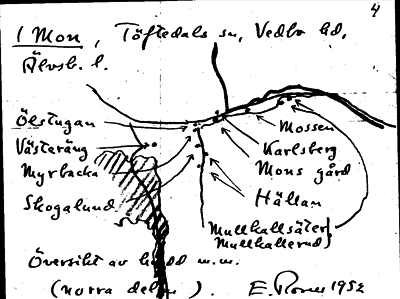 4
1 Mon, Töftedals sn, Vedbo hd,
Älvsb. l.
Ölstugan
Västeräng
Myrbacka
Skogalund
Mossen
Karlsberg
Mons gård
Hällan
Mullhallsäter
Mullhallerud
Översikt av m.m.
(norra ). E. 1952